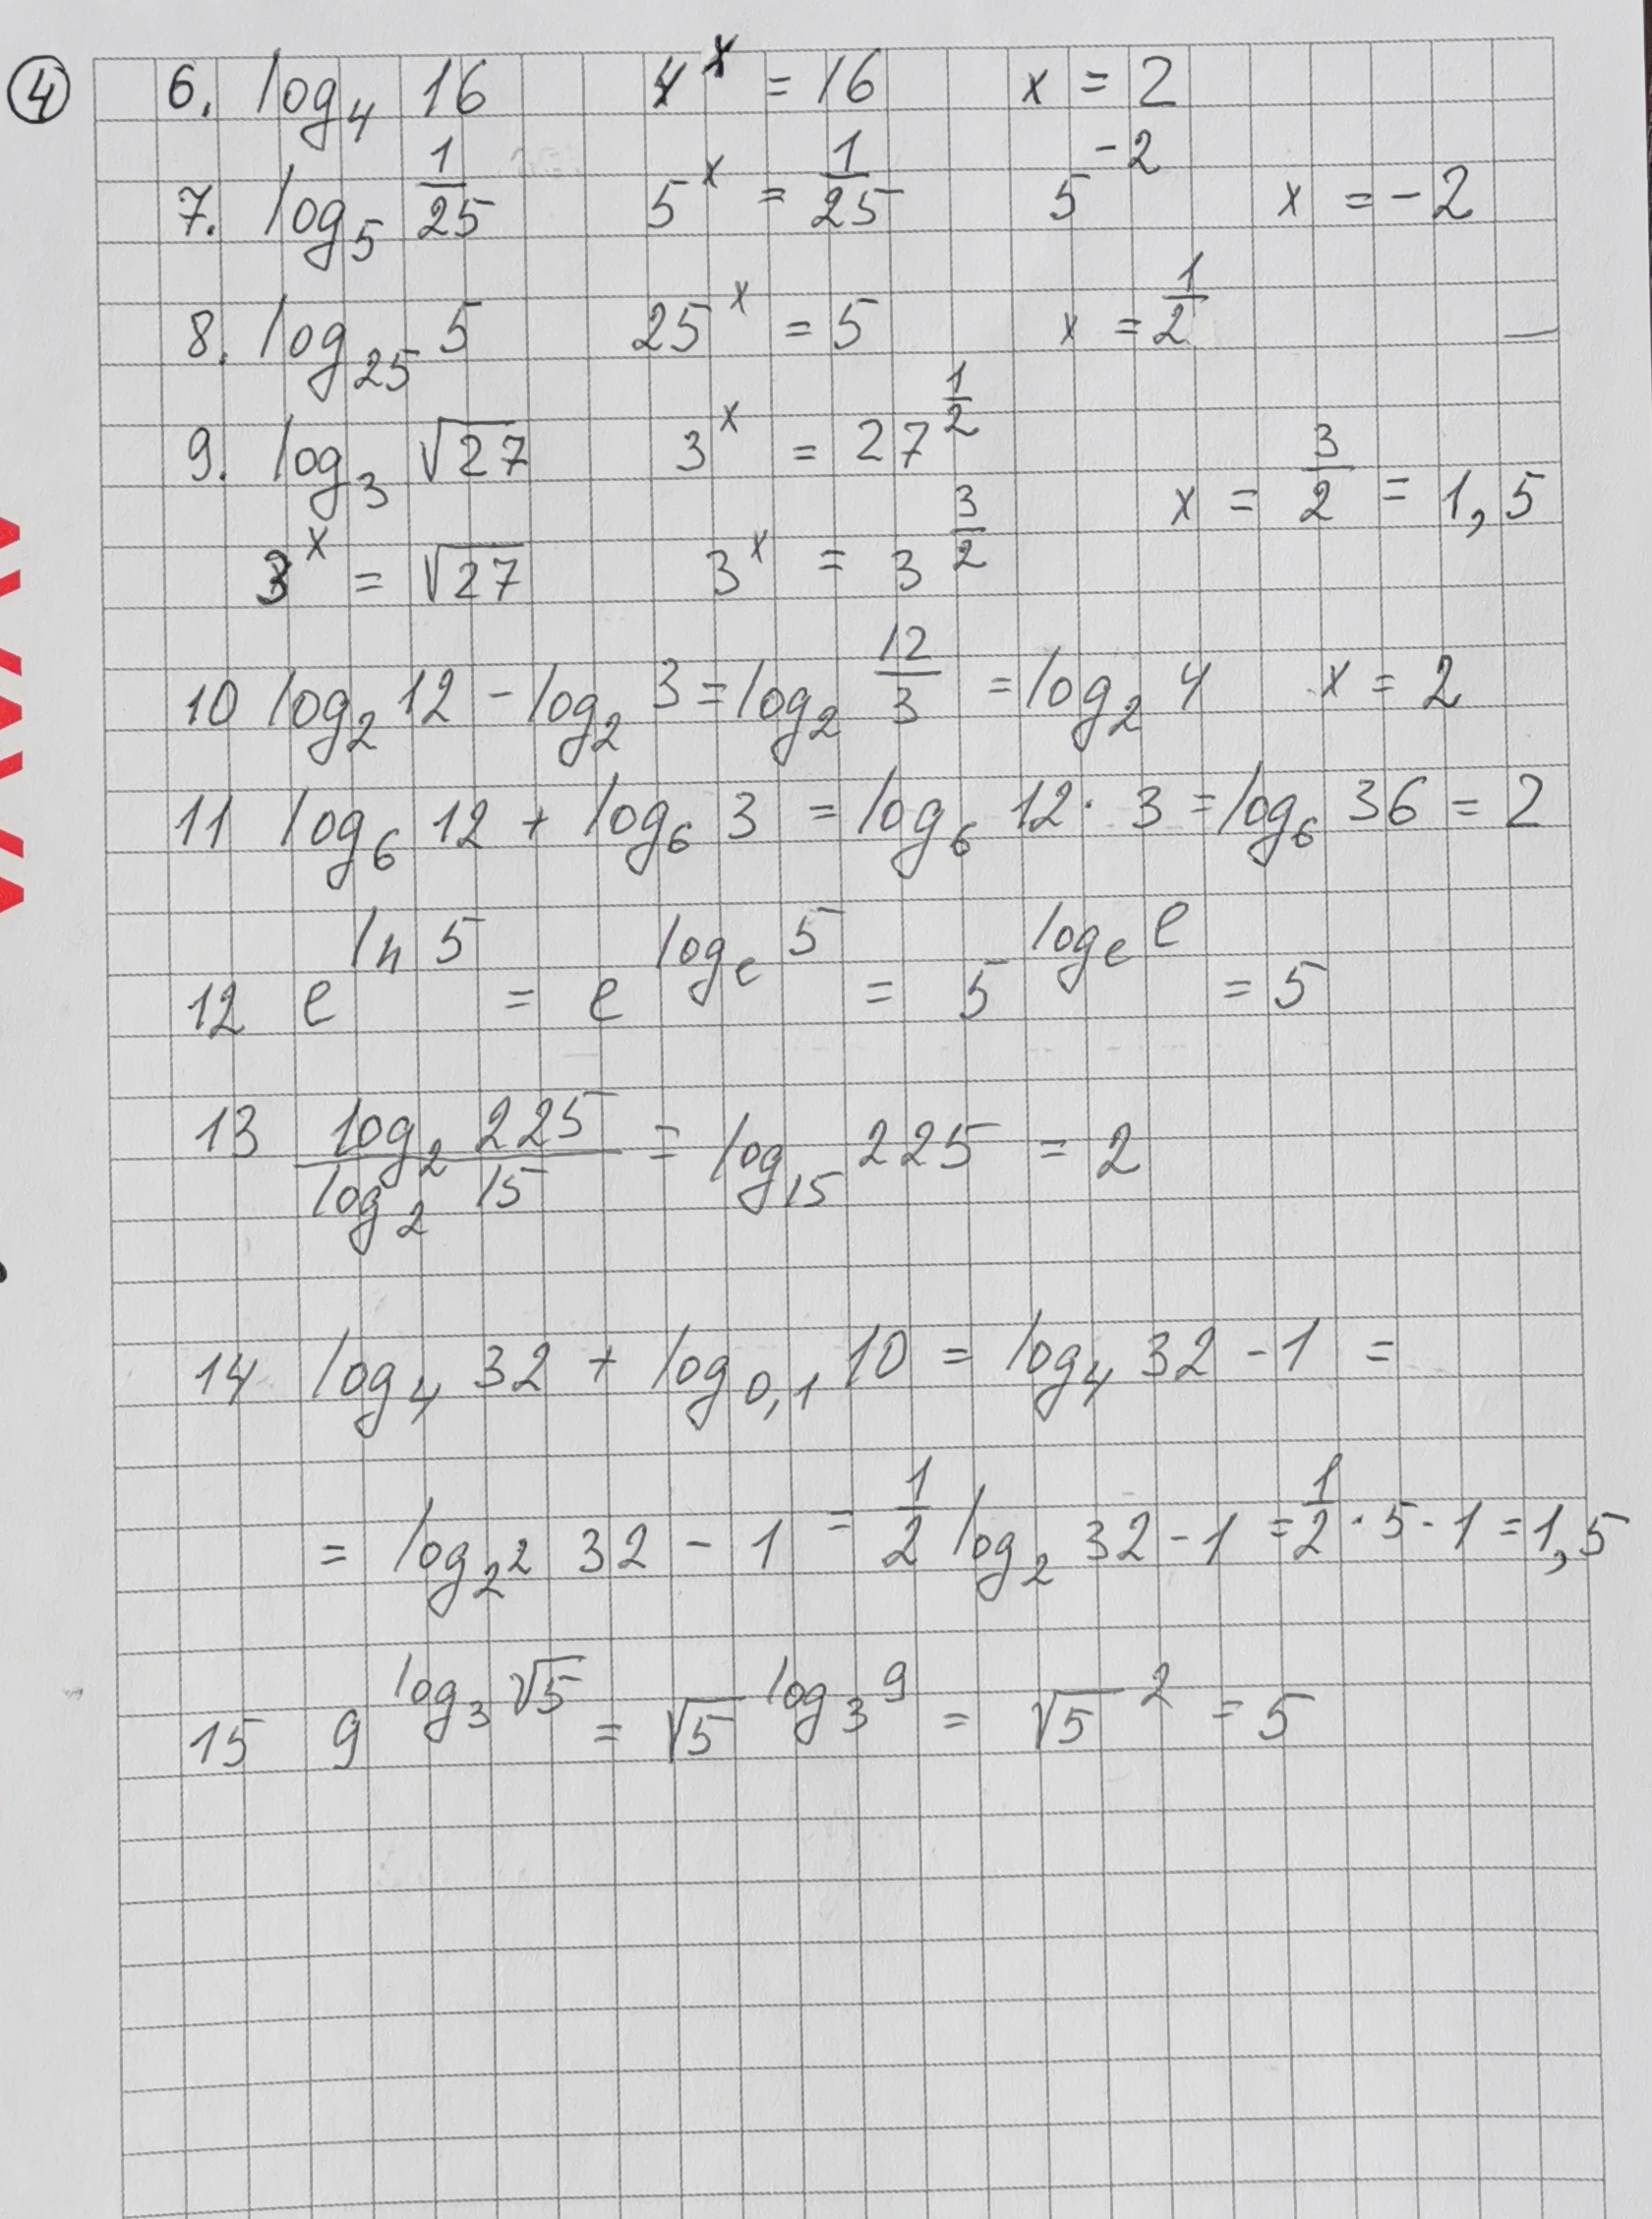 ④ 6. log₄ 16 4ˣ = 16 x = 2
7. log₅ 1/25 5ˣ = 1/25 5⁻² x = -2
8. log₂₅ 5 25ˣ = 5 x = 1/2
9. log₃ √27 3ˣ = 27^(1/2) x = 3/2 = 1,5
3ˣ = √27 3ˣ = 3^(3/2)
10 log₂ 12 - log₂ 3 = log₂ 12/3 = log₂ 4 x = 2
11 log₆ 12 + log₆ 3 = log₆ 12 · 3 = log₆ 36 = 2
12 e^(ln 5) = e^(logₑ 5) = 5^(logₑ e) = 5
13 (log₂ 225)/(log₂ 15) = log₁₅ 225 = 2
14 log₄ 32 + log_(0,1) 10 = log₄ 32 - 1 =
= log_(2²) 32 - 1 = 1/2 log₂ 32 - 1 = 1/2 · 5 - 1 = 1,5
15 9^(log₃ √5) = √5^(log₃ 9) = √5² = 5